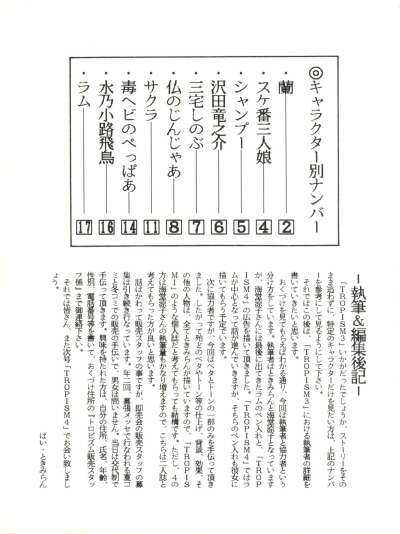 ◎キャラクター別ナンバー
・蘭――②
・スケ番三人娘――④
・シャンプー――⑤
・沢田竜之介――⑥
・三宅しのぶ――⑦
・仏のじんじゃあ――⑧
・サクラ――⑪
・毒ヘビのぺっぱあ――⑭
・水乃小路飛鳥――⑯
・ラム――⑰
―執筆&編集後記―
「TROPISM3」いかがだったでしょうか、ストーリーをその
まま追わずに、特定のキャラだけを見たい方は、上記のナンバ
ーを参考にして見るようにして下さい。
それではこの後は、「TROPISM3」における執筆者の詳細を
書いていきたいと思います。
おくづけを見てもらえばわかる通り、今回は執筆者と協力者という
分け方をしています。執筆者はときみらんと海堂諒子となっています
が、海堂諒子さんには最後に出てきたラムのペン入れと、「TROP
ISM4」の広告を描いて頂きました。「TROPISM4」ではラ
ムが中心となって話が進んでいきますが、そちらのペン入れも彼女に
描いてもらう予定でいます。
次に協力者ですが、今回はベタとトーンの一部のみを手伝って頂き
ました。したがって殆どのベタやトーン等の仕上げ、背景、効果、そ
の他の人物は、全てときみらんが描いていますので、「TROPIS
M1」のような個人誌だと考えてもらっても結構です。ただし、4の
方は海堂諒子さんの執筆量もかなり増えますので、こちらは二人誌と
考えてもらった方が良いと思います。
話はかわって販売スタッフの事ですが、即売会の販売スタッフの募
集は引き続き行なっています。年二回、幕張メッセで行なわれる夏コ
ミと冬コミでの販売の手伝いで、男女は問いません。当日は交代制で
手伝って頂きます。興味を持たれた方は、自分の住所、氏名、年齢、
性別、電話番号等を書いて、おくづけ住所の「トロピズム販売スタッ
フ係」まで御連絡下さい。
それでは皆さん、また次号「TROPISM4」でお会い致しまし
ょう。
ばい・ときみらん